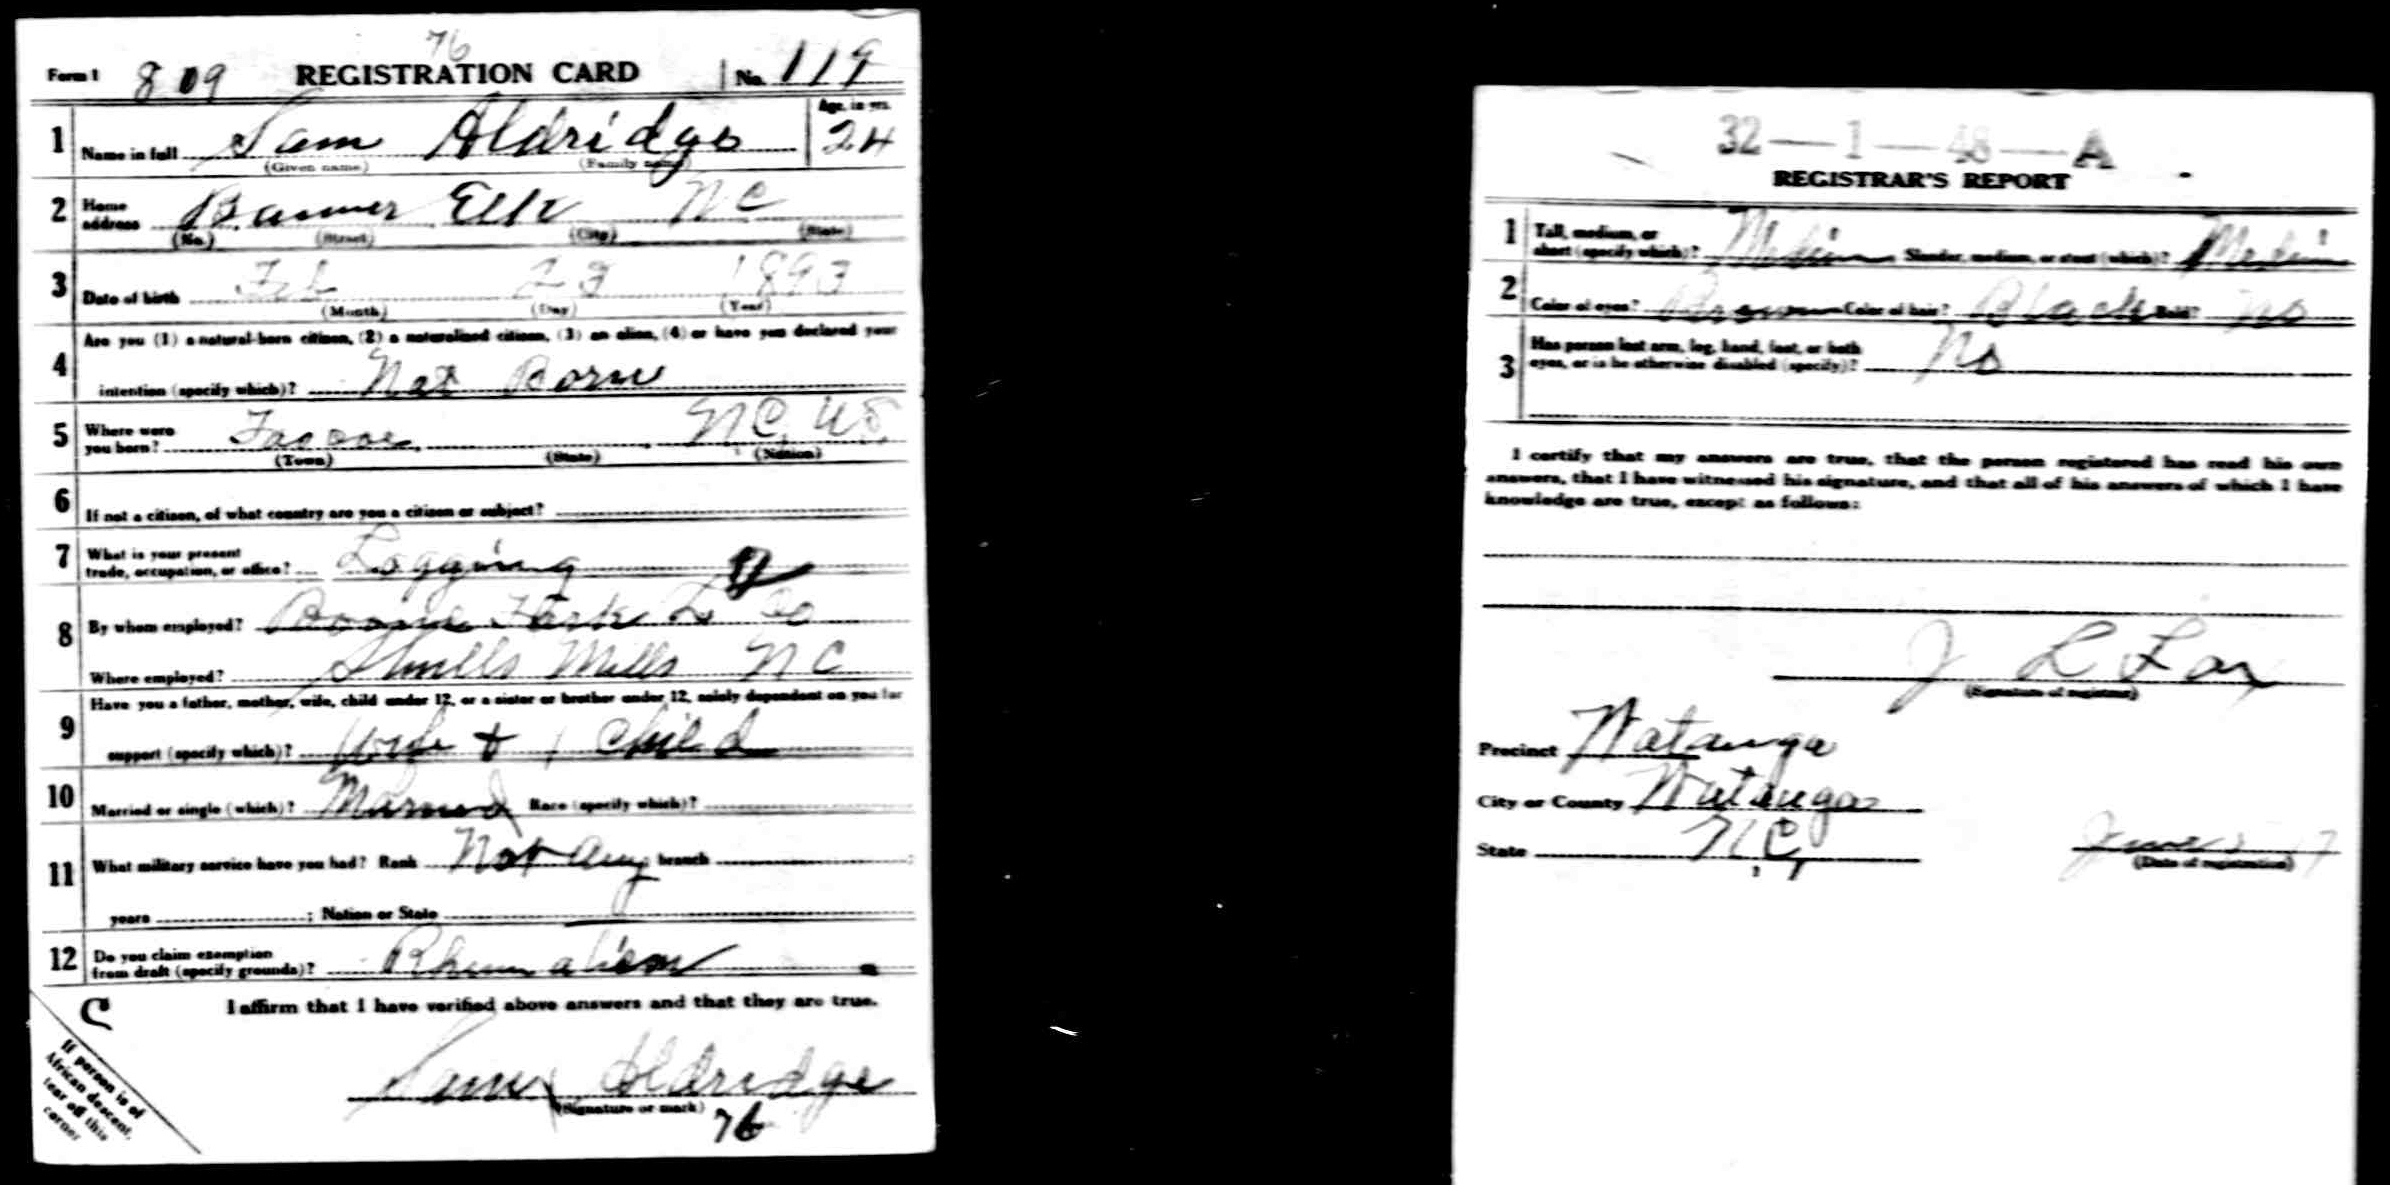 76
Form 1 809 REGISTRATION CARD No. 119
1 Name in full Sam Aldridge Age, in yrs. 24
(Given name) (Family name)
2 Home address Banner Elk NC
(No.) (Street) (City) (State)
3 Date of birth Feb 23 1893
(Month) (Day) (Year)
Are you (1) a natural-born citizen, (2) a naturalized citizen, (3) an alien, (4) or have you declared your
4 intention (specify which)? Nat Born
5 Where were you born? Foscoe NC, US.
(Town) (State) (Nation)
6 If not a citizen, of what country are you a citizen or subject?
7 What is your present trade, occupation, or office? Logging
8 By whom employed? Boone Fork L Co
Where employed? Shulls Mills NC
Have you a father, mother, wife, child under 12, or a sister or brother under 12, solely dependent on you for
9 support (specify which)? Wife + 1 Child
10 Married or single (which)? Married Race (specify which)?
11 What military service have you had? Rank Not any branch ;
years ; Nation or State
12 Do you claim exemption from draft (specify grounds)? Rhumatism
I affirm that I have verified above answers and that they are true.
Sam Aldridge
(Signature or mark)
76
If person is of
African descent,
tear off this
corner
32—1—48—A
REGISTRAR'S REPORT
1 Tall, medium, or short (specify which)? Medium Slender, medium, or stout (which)? Medium
2 Color of eyes? Brown Color of hair? Black Bald? No
3 Has person lost arm, leg, hand, foot, or both eyes, or is he otherwise disabled (specify)? No
I certify that my answers are true, that the person registered has read his own
answers, that I have witnessed his signature, and that all of his answers of which I have
knowledge are true, except as follows:
J L Fox
(Signature of registrar)
Precinct Watauga
City or County Watauga
State NC
June 17
(Date of registration)